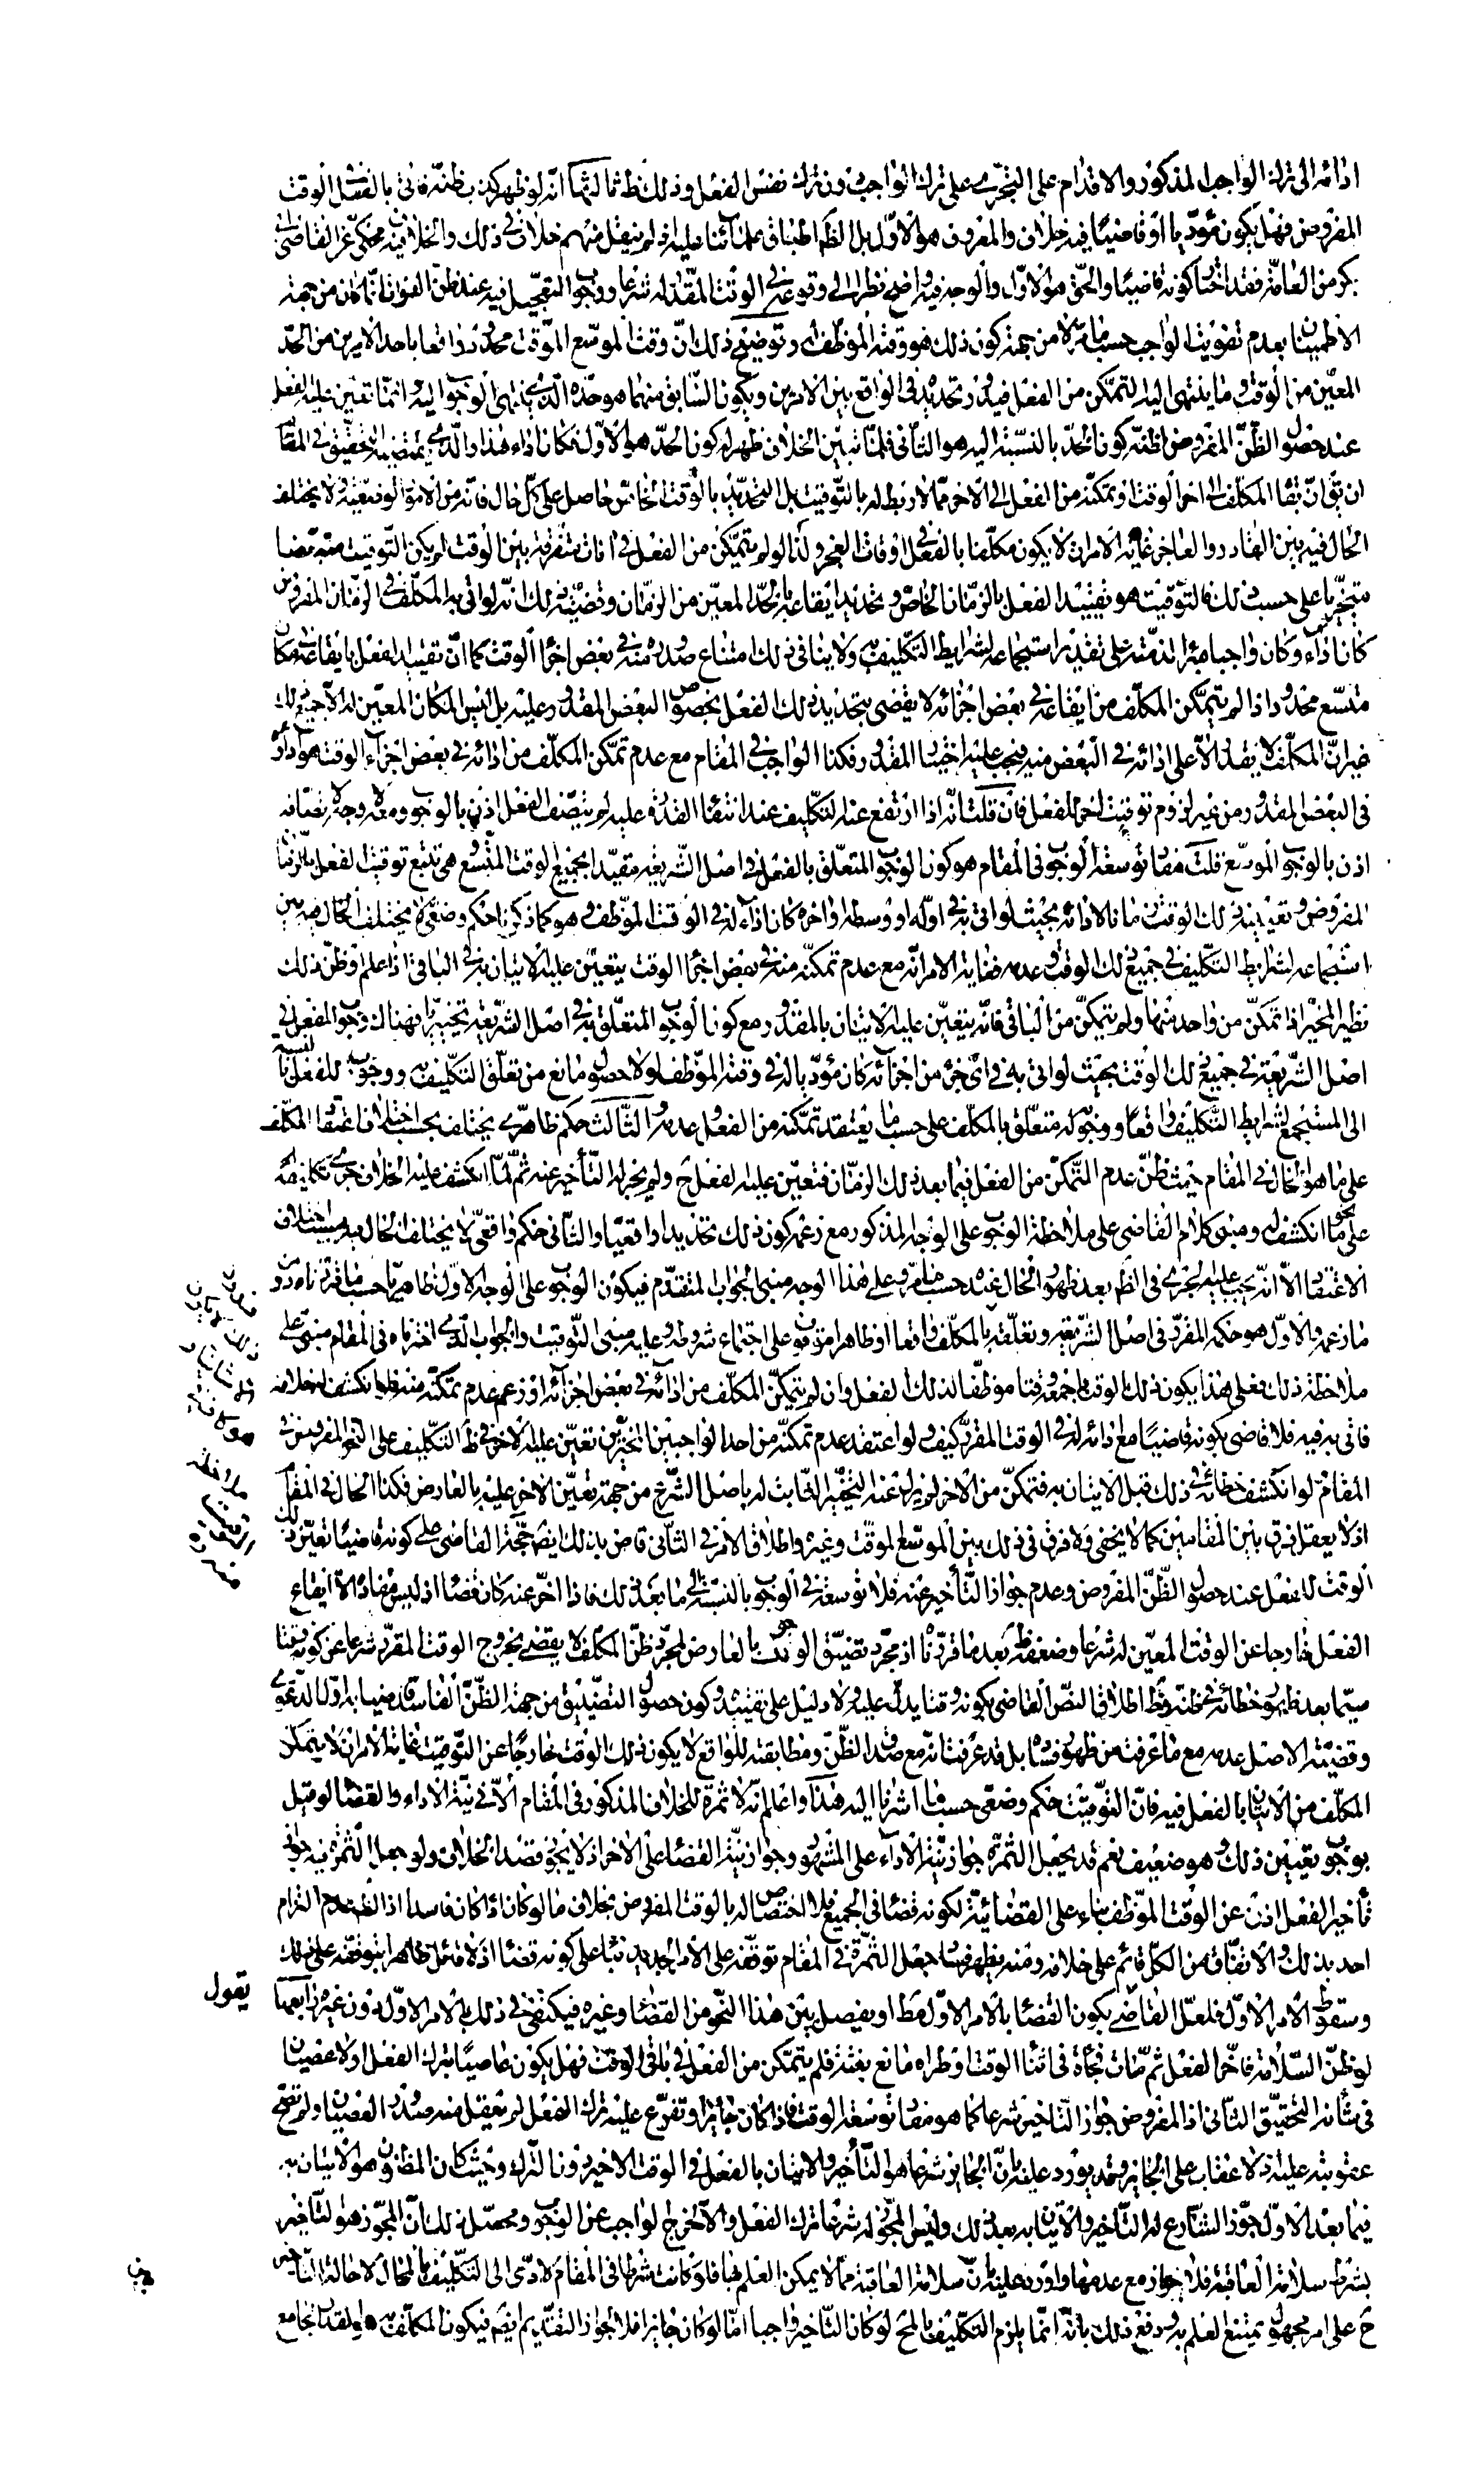 ادائه الى ترك الواجب المذكور والاقدام على التجرى على ترك الواجب دون ترك نفس الفعل وذلك ظ ثالثها انه لو ظهر كذب ظنه فاتى بالفعل الوقت
المفروض فهل يكون مؤديا او قاضيا فيه خلاف والمعروف هو الاول بل الظ اطباق علمائنا عليه اذ لم ينقل منهم خلاف في ذلك والخلاف فيه محكي عن القاضى ابى
بكر من العامة فقد اختار كونه قاضيا والحق هو الاول والوجه فيه واضح نظرا الى وقوعه في الوقت المقدر له شرعا ووجوب التعجيل فيه عند ظن الفوات انما كان من جهة
الاطمينان بعدم تفويت الواجب حسبما مر لا من جهة كون ذلك هو وقته الموظف له وتوضيح ذلك ان وقت الموسع الموقت محدود واقعا باحد الامرين من الحد
المعين من الوقت وما ينتهى اليه التمكن من الفعل فيدور تحديده في الواقع بين الامرين ويكون السابق منهما هو حده الذى ينتهى الوجوب اليه انما تعين عليه الفعل
عند حصول الظن المفروض لظنه كون الحد بالنسبة اليه هو الثاني فلما تبين الخلاف ظهر له كون الحد هو الاول فكان اداء هذا والذي يقتضيه التحقيق في المقام
ان يق ان بقاء المكلف الى اخر الوقت وتمكنه من الفعل الى الاخر مما لا ربط له بالتوقيت بل التحديد بالوقت الخاص حاصل على كل حال فانه من الامور الوضعية ولا يختلف
الحال فيه بين القادر والعاجز غاية الامر ان لا يكون مكلفا بالفعل في اوقات العجز ولذا لو لم يتمكن من الفعل في اوقات متفرقة بين الوقت لم يكن التوقيت متبعضا
متجزيا على حسب ذلك فالتوقيت هو تقييد الفعل بالزمان الخاص وتحديد ايقاعه بالحد المعين من الزمان وقضية ذلك انه لو اتى به المكلف في الزمان المفروض
كان اداء وكان واجبا مبرءا لذمته على تقدير استجماعه لشرايط التكليف به ولا ينافى ذلك امتناع صدوره منه في بعض اجزاء الوقت كما ان تقييد الفعل بايقاعه في مكان
متسع محدود اذا لم يتمكن المكلف من ايقاعه في بعض اجزائه لا يقضى بتحديد ذلك الفعل بخصوص البعض المقدور عليه بل ليس المكان المعين له الا جميع ذلك
غير ان المكلف لا يقدر الا على ادائه في البعض منه فيجب عليه اختيار المقدور فكذا الواجب في المقام مع عدم تمكن المكلف من ادائه في بعض اجزاء الوقت هو اداؤه
فى البعض المقدور من غير لزوم توقيت اخر للفعل فان قلت انه اذا ارتفع عنه التكليف عند انتفاء القدرة عليه لم يتصف الفعل اذن بالوجوب ومعه لا وجه لاتصافه
اذن بالوجوب الموسع قلت مفاد توسعة الوجوب فى المقام هو كون الوجوب المتعلق بالفعل في اصل الشريعة مقيدا بجميع الوقت المتسع هي تتبع توقيت الفعل بالزمان
المفروض وتعيينه ذلك الوقت زمانا لادائه بحيث لو اتى به في اوله او وسطه او اخره كان اداء له في الوقت الموظف له هو كما ذكرنا حكم وضعى لا يختلف الحال فيه بين
استجماعه لشرايط التكليف في جميع ذلك الوقت وعدمه فغاية الامر انه مع عدم تمكنه منه في بعض اجزاء الوقت يتعين عليه الاتيان به في الباقى اذا علم او ظن ذلك
نظير المخير اذا تمكن من واحد منها ولم يتمكن من الباقى فانه يتعين عليه الاتيان بالمقدور مع كون الوجوب المتعلق به في اصل الشريعة تخييريا فهناك وجوب للفعل في
اصل الشريعة في جميع ذلك الوقت بحيث لو اتى به في اى جزء من اجزائه كان مؤديا له في وقته الموظف لولا حصول مانع من تعلق التكليف به ووجوب للفعل بالنسبة
الى المستجمع لشرايط التكليف واقعا ووجوب له متعلق بالمكلف على حسب ما يعتقد تمكنه من الفعل وعدمه والثالث حكم ظاهرى يختلف بحسب اختلاف اعتقاد المكلف
على ما هو الحال في المقام حيث ظن عدم التمكن من الفعل فيما بعد ذلك الزمان فتعين عليه الفعل ح ولم يجز له التأخير عنه ثم لما انكشف عليه الخلاف جرى تكليفه
على نحو ما انكشف له ومبنى كلام القاضى على ملاحظة الوجوب على الوجه المذكور مع زعمه كون ذلك تحديدا واقعيا والثانى حكم واقعى لا يختلف الحال به بسبب اختلاف
الاعتقاد الا انه يجب عليه الجرى فى الظ بعد ظهور الحال عنده حسب ما مر وعلى هذا الوجه مبنى الجواب المتقدم فيكون الوجوب على الوجه الاول ظاهريا حسب ما قررناه دون
ما زعمه والاول هو حكمه المقرر فى اصل الشريعة وتعلقه بالمكلف واقعا او ظاهرا موقوف على اجتماع شروطه وعليه مبنى التوقيت والجواب الذى اخترناه فى المقام مبنى على
ملاحظة ذلك فعلى هذا يكون ذلك الوقت باجمعه وقتا موظفا لذلك الفعل وان لم يتمكن المكلف من ادائه في بعض اجزائه او زعم عدم تمكنه منه فلو انكشف له خلافه
فاتى به فيه فلا قاضى بكونه قاضيا مع ادائه له في الوقت المقرر كيف ولو اعتقد عدم تمكنه من احد الواجبين المخيرين تعين عليه الاخر في ظ التكليف على النحو المفروض في
المقام ثم لو انكشف خطائه في ذلك قبل الاتيان به فتمكن من الاخر لم يزل عنه التخيير الثابت له باصل الشرع من جهة تعين الاخر عليه بالعارض فكذا الحال في المقام
اذ لا يعقل فرق بين المقامين كما لا يخفى ولا فرق فى ذلك بين الموسع الموقت وغيره واطلاق الامر في الثانى قاض بذلك ايضا حجة القاضى على كونه قاضيا تعين ذلك
الوقت للفعل عند حصول الظن المفروض وعدم جواز التأخير عنه فلا توسعة في الوجوب بالنسبة الى ما بعد ذلك فاذا اخر عنه كان قضاء اذ ليس مفاده الا ايقاع
الفعل خارجا عن الوقت المعين له شرعا وضعفه ظ بعد ما قررناه اذ مجرد تضيق الوجوب بالعارض لمجرد ظن المكلف لا يقضى بخروج الوقت المقرر شرعا عن كونه وقتا
سيما بعد ظهور خطائه في ظنه وقط اطلاق النص القاضى بكونه وقتا يدل عليه ولا دليل على تقييده وكون حصول التضييق من جهة الظن الفاسد قاضيا به اول الدعوى
وقضية الاصل عدمه مع ما عرفت من ظهور فساده بل قد عرفت انه مع صدق الظن ومطابقته للواقع لا يكون ذلك الوقت خارجا عن التوقيت غاية الامر ان لا يتمكن
المكلف من الاتيان بالفعل فيه فان التوقيت حكم وضعى حسب ما اشرنا اليه هذا واعلم انه لا ثمرة للخلاف المذكور فى المقام الا في نية الاداء والقضاء لو قيل
بوجوب تعيين ذلك وهو ضعيف نعم قد يجعل الثمرة جواز نية الاداء على المشهور وجواز نية القضاء على الاخر اذ لا يجوز قصد الخلاف ولو جعل الثمرة فيه جواز
تأخير الفعل اذن عن الوقت الموظف بناء على القضائية لكونه قضاء فى الجميع فلا اختصاص له بالوقت المفروض بخلاف ما لو كان اداء كان فاسدا اذ الظ عدم التزام
احد بذلك والاتفاق من الكل قائم على خلافه ومنه يظهر فساد جعل الثمرة في المقام توقفه على الامر الجديد بناء على كونه قضاء اذ لا قائل ظاهرا بتوقفه على ذلك
وسقوط الامر الاول فلعل القاضى يقول بكون القضاء بالامر الاول مط او يفصل بين هذا النحو من القضاء وغيره فيكتفى في ذلك بالامر الاول دون غيره رابعها
لو ظن السلامة فاخر الفعل ثم مات فجأة فى اثناء الوقت او طراه مانع بغتة فلم يتمكن من الفعل في باقى الوقت فهل يكون عاصيا بترك الفعل او لا عصيان
فى شأنه التحقيق الثانى اذ المفروض جواز التاخير شرعا كما هو مفاد توسعة الوقت فاذا كان جائزا وتفرع عليه ترك الفعل لم يعقل منه صدق العصيان ولم تصح
عقوبته عليه اذ لا عقاب على الجائز وقد يورد عليه بان الجايز شرعا هو التأخير والاتيان بالفعل في الوقت الاخير دون الترك وحيث كان المظنون هو الاتيان به
فيما بعد الاول جوز الشارع له التاخير والاتيان به بعد ذلك وليس المجوز له شرعا ترك الفعل والا لخرج الواجب عن الوجوب ومحصل ذلك ان المجوز هو التأخير
بشرط سلامة العاقبة فلا جواز مع عدمها واورد عليه بان سلامة العاقبة مما لا يمكن العلم بها فلو كانت شرطا فى المقام لادى الى التكليف بالمحال لاحالة التأخير
ح على امر مجهول يمتنع العلم به ودفع ذلك بانه انما يلزم التكليف بالمحال لو كان التاخير واجبا اما لو كان جايزا فلا لجواز التقديم ايضا فيكون المكلف به القدر الجامع
يقول
بين